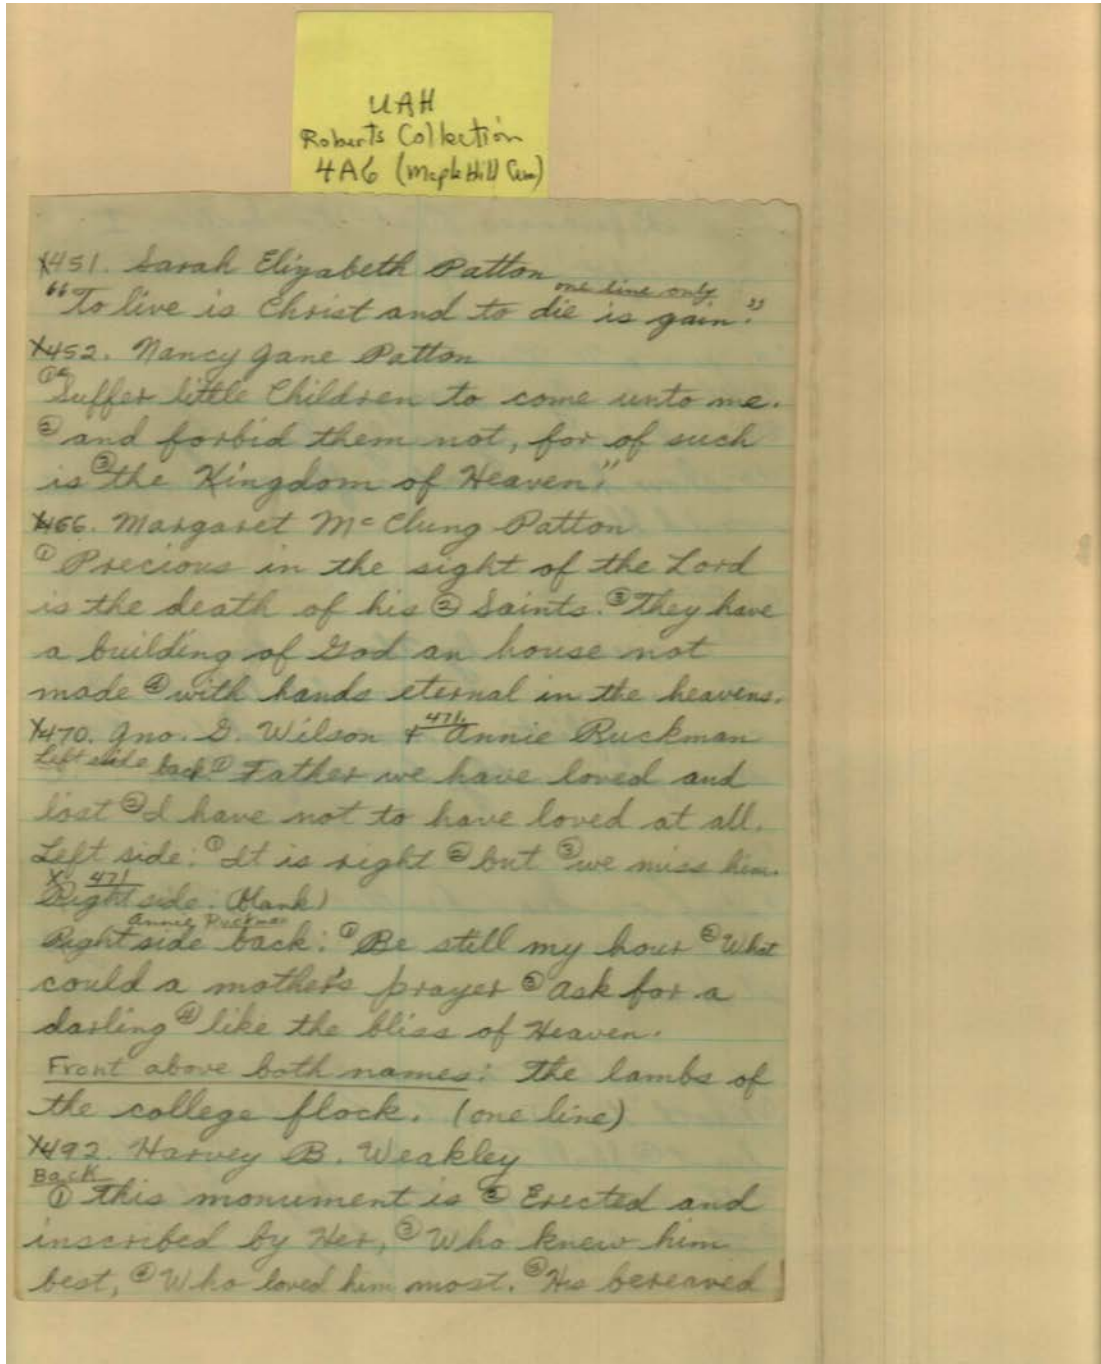 UAH
Roberts Collection
4A6 (Maple Hill Cem)
X451. Sarah Elizabeth Patton
one line only
"To live is Christ and to die is gain."
X452. Nancy Jane Patton
①"Suffer little Children to come unto me.
② and forbid them not, for of such
is ③ the Kingdom of Heaven."
X466. Margaret McClung Patton
① Precious in the sight of the Lord
is the death of his ② Saints. ③ They have
a building of God an house not
made ④ with hands eternal in the heavens.
X470. Jno. G. Wilson + 471. Annie Ruckman
Left side back ① Father we have loved and
lost ② I have not to have loved at all.
Left side: ① It is right ② but ③ we miss him.
X 471
Right side: (blank)
Annie Ruckman
Right side back: ① Be still my hour ② What
could a mother's prayer ③ ask for a
darling ④ like the bliss of Heaven.
Front above both names: The lambs of
the college flock. (one line)
X492. Harvey B. Weakley
Back
① This monument is ② Erected and
inscribed by Her, ③ Who knew him
best, ④ Who loved him most. ⑤ His bereaved